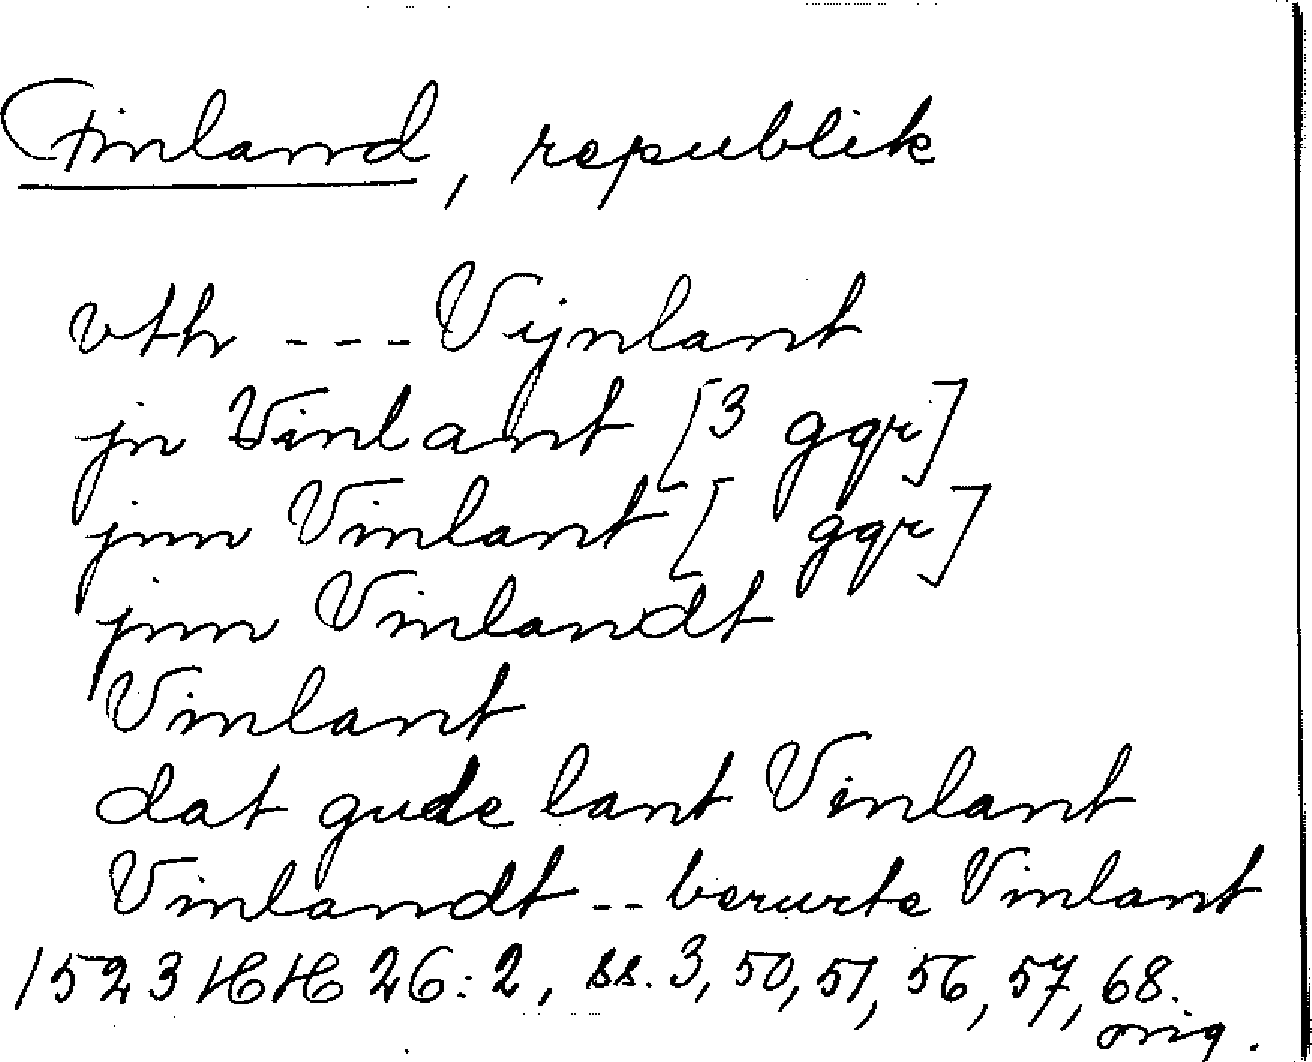 Finland, republik
vth --- Vijnlant
jn Vinlant [3 ggr]
jnn Vinlant [ ggr]
jnn Vinlandt
Vinlant
dat gude lant Vinlant
Vinlandt -- berurte Vinlant
1523 HH 26:2, ss. 3, 50, 51, 56, 57, 68.
orig.